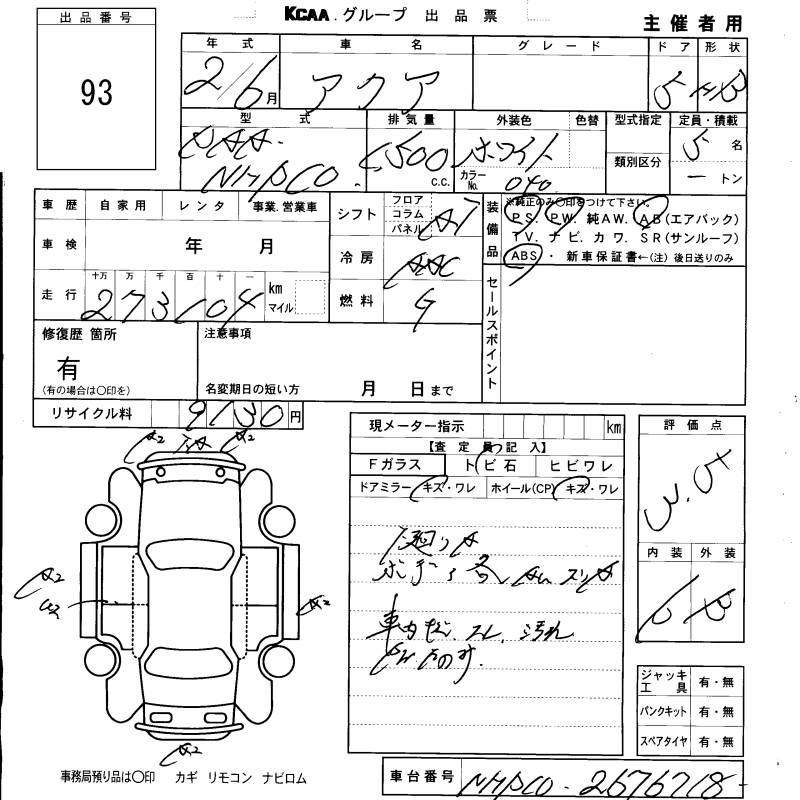 KCAA.グループ 出品票
主催者用
出品番号
93
年式 車名 グレード ドア 形状
2/6月 アクア 5 HB
型式 排気量 外装色 色替 型式指定 定員・積載
DAA- 1500 c.c. ホワイト 5名
NHP10 カラーNo. 040 類別区分 ートン
車歴 自家用 レンタ 事業.営業車
シフト フロア コラム パネル AT
装備品 ※純正のみ○印をつけて下さい。
PS. PW. 純AW. AB(エアバック)
TV. ナビ. カワ. SR(サンルーフ)
ABS・ 新車保証書←(注) 後日送りのみ
車検 年 月
冷房 AAC
走行 十万 万 千 百 十 一
273104 km マイル
燃料 G
セールスポイント
修復歴 箇所
有
(有の場合は○印を)
注意事項
名変期日の短い方 月 日まで
リサイクル料 9130円
現メーター指示 km
【査定員記入】
Fガラス トビ石 ヒビワレ
ドアミラー キズ・ワレ ホイール(CP) キズ・ワレ
評価点
3.5
内装 外装
C B
A2 A2
A2
A2
A2
廻りA
車内 スレ、汚れ
ジャッキ工具 有・無
パンクキット 有・無
スペアタイヤ 有・無
事務局預り品は○印 カギ リモコン ナビロム
車台番号 NHP10-2676718